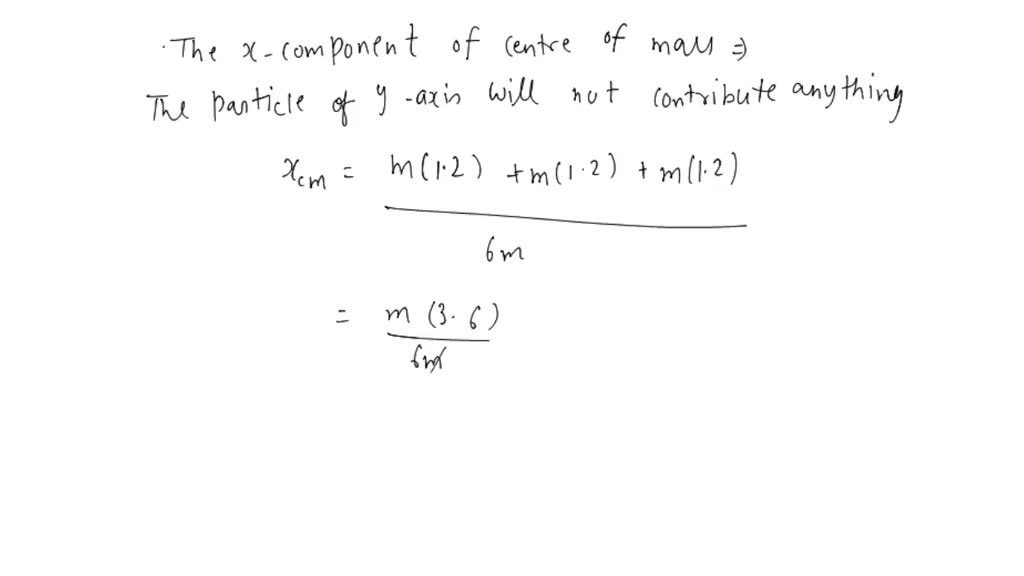 The x-component of centre of mass ⇒
The particle of y-axis will not contribute anything
x_cm = m(1.2) + m(1.2) + m(1.2)
6m
= m (3.6)
6m